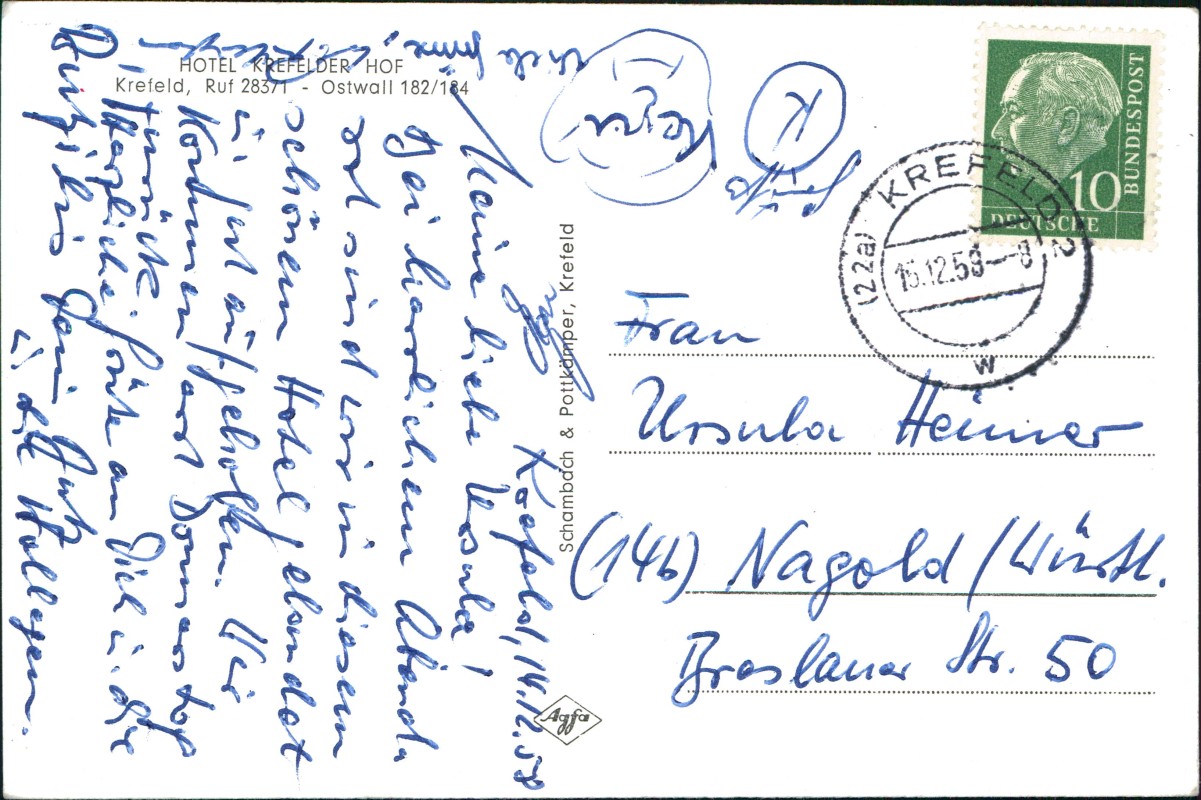 HOTEL KREFELDER HOF
Krefeld, Ruf 28371 - Ostwall 182/184
Krefeld, 14.12.58
Meine liebe Ursula!
Bei herrlichem Abend
rot sind wir in diesem
schönen Hotel gelandet
u. gut aufgehoben. Wir
kommen erst Donnerstag
zurück.
Herzliche Grüße an Dich u. die
Dein
u. alle Kollegen.
viele
Grüße
K
Schambach & Pottkämper, Krefeld
Agfa
DEUTSCHE
BUNDESPOST
10
(22a) KREFELD 2
15.12.58 - 8
w
Frau
Ursula Heimer
(14b) Nagold / Württ.
Breslauer Str. 50